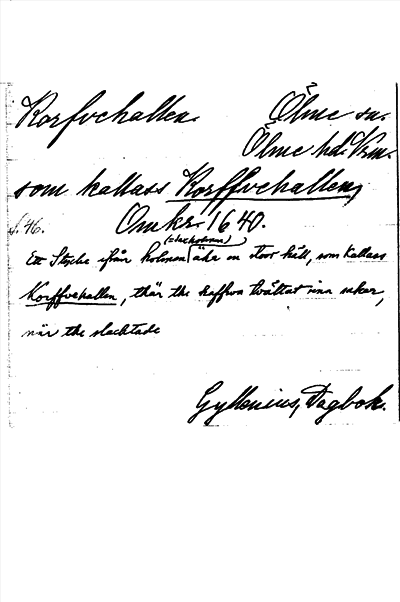 Korfvehallen.
Ölme sn.
Ölme hd. Vrm.
som kallass Korffvehallen,
Omkr. 1640.
s. 46.
Ett Stycke ifrån holmen äke en stoor häll, som Kallass
Korffvehallen, thär the haffwa twättat sina
när the slachtade
Gyllenius, Dagbok.